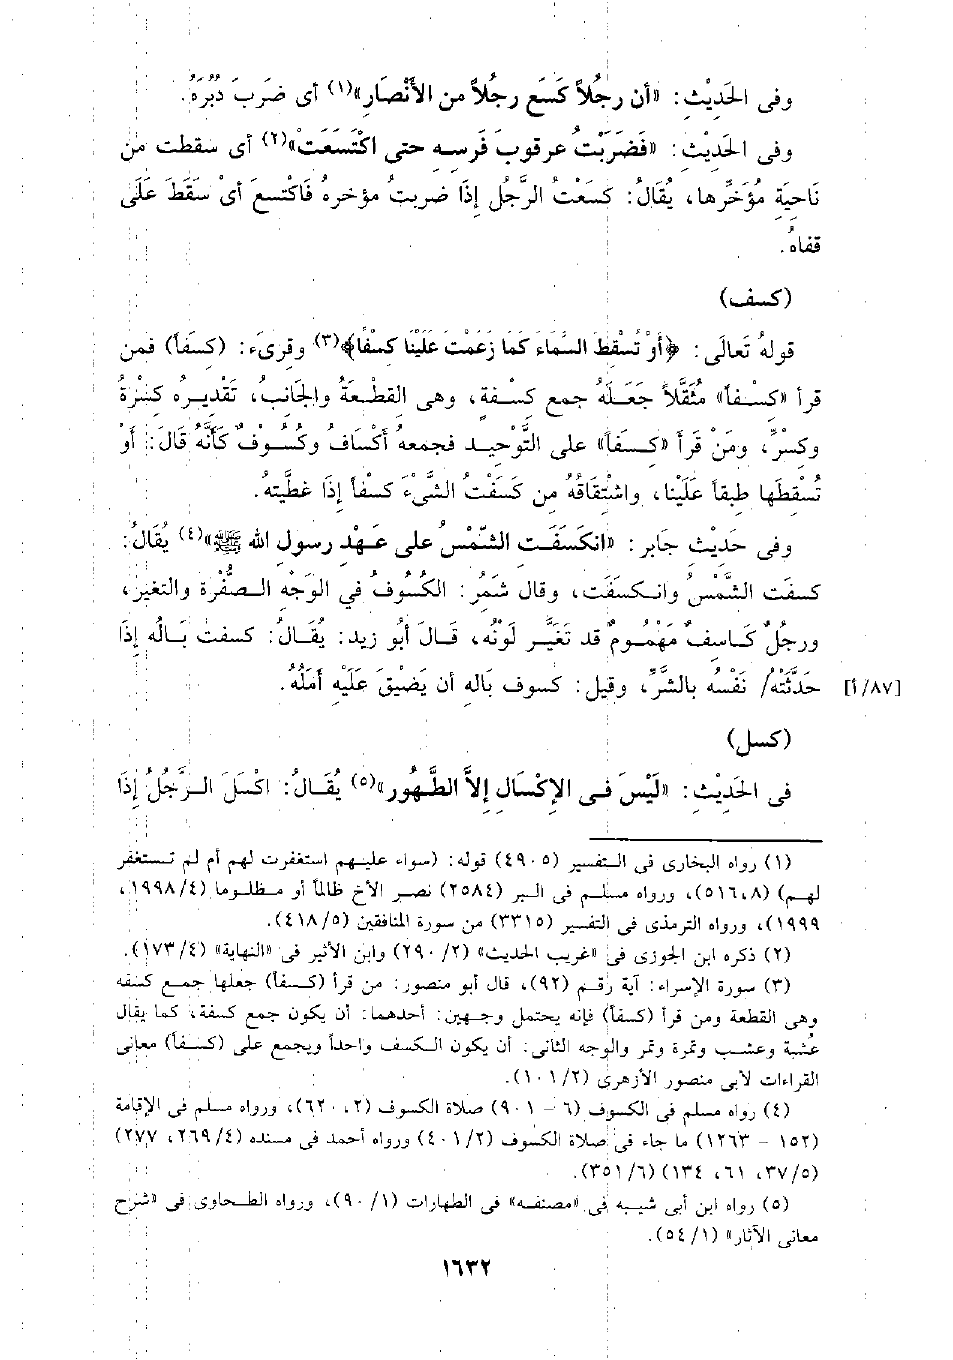 وفى الحَدِيْثِ: «أن رجُلاً كَسَع رجُلاً من الأَنْصَارِ»(١) أى ضَرَبَ دُبُرَهُ.
وفى الحَدِيْثِ: «فَضَرَبْتُ عرقوبَ فَرسِهِ حتى اكْتَسَعَتْ»(٢) أى سقطت من
نَاحِيَةِ مُؤَخَّرِها، يُقَالُ: كسَعْتُ الرَّجُل إذَا ضربتُ مؤخرهُ فَاكْتسعَ أىْ سَقَطَ عَلَى
قفاهُ.
(كسف)
قولهُ تَعالَى: ﴿أَوْ تُسْقِطَ السَّمَاءَ كَمَا زَعَمْتَ عَلَيْنَا كِسْفًا﴾(٣) وقرِىءَ: (كِسَفاً) فمن
قرأ «كِسْفاً» مُثَقَّلاً جَعَلَهُ جمع كِسْفة، وهى القطْعةُ والجانبُ، تَقْديره كِسْرَةُ
وكِسْرٌ، ومَنْ قرأ «كِسَفاً» على التَّوْحِيد فجمعهُ أكْسَافُ وكُسُوْفٌ كأنَّهُ قَالَ: أوْ
تُسْقِطَها طبقاً عَلَيْنا، واشْتِقَاقُهُ من كَسَفْتُ الشَّىْءَ كسفاً إذَا غطَّيتهُ.
وفى حَدِيْثِ جابرٍ: «انكَسَفَت الشَّمْسُ على عَهْدِ رسولِ الله ﷺ»(٤) يُقَالُ:
كسفَت الشَّمْسُ وانكسفَت، وقال شَمُرُ: الكُسُوفُ في الوَجْهِ الصُّفْرة والتغير،
ورجُلٌ كَاسفٌ مَهْمُومٌ قد تَغَيَّر لَوْنُه، قَالَ أبُو زيد: يُقَالُ: كسفت بَالُه إذَا
حَدَّثَتْهُ/ نَفْسُه بالشَّرِّ، وقيل: كسوف باله أن يَضِيْقَ عَلَيْهِ أمَلُهُ. [٨٧/أ]
(كسل)
فى الحَدِيْثِ: «لَيْسَ فى الإكْسَال إلاَّ الطَّهُور»(٥) يُقَالُ: اكْسَلَ الرَّجُلُ إذَا
(١) رواه البخارى فى التفسير (٤٩٠٥) قوله: (سواء عليهم استغفرت لهم أم لم تستغفر
لهم) (٥١٦،٨)، ورواه مسلم فى البر (٢٥٨٤) نصر الأخ ظالماً أو مظلوما (١٩٩٨/٤،
١٩٩٩)، ورواه الترمذى فى التفسير (٣٣١٥) من سورة المنافقين (٤١٨/٥).
(٢) ذكره ابن الجوزى فى «غريب الحديث» (٢٩٠/٢) وابن الأثير فى «النهاية» (١٧٣/٤).
(٣) سورة الإسراء: آية رقم (٩٢)، قال أبو منصور: من قرأ (كسفاً) جعلها جمع كسفه
وهى القطعة ومن قرأ (كسفاً) فإنه يحتمل وجهين: أحدهما: أن يكون جمع كسفة، كما يقال
عشبة وعشب وتمرة وتمر والوجه الثانى: أن يكون الكسف واحداً ويجمع على (كسفاً) معانى
القراءات لأبى منصور الأزهرى (١٠١/٢).
(٤) رواه مسلم فى الكسوف (٦ - ٩٠١) صلاة الكسوف (٢، ٦٢٠)، ورواه مسلم فى الإقامة
(١٥٢ - ١٢٦٣) ما جاء فى صلاة الكسوف (٤٠١/٢) ورواه أحمد فى مسنده (٢٦٩/٤، ٢٧٧)
(٣٧/٥، ٦١، ١٣٤) (٣٥١/٦).
(٥) رواه ابن أبى شيبه فى «مصنفه» فى الطهارات (٩٠/١)، ورواه الطحاوى فى «شرح
معانى الآثار» (٥٤/١).
١٦٣٢